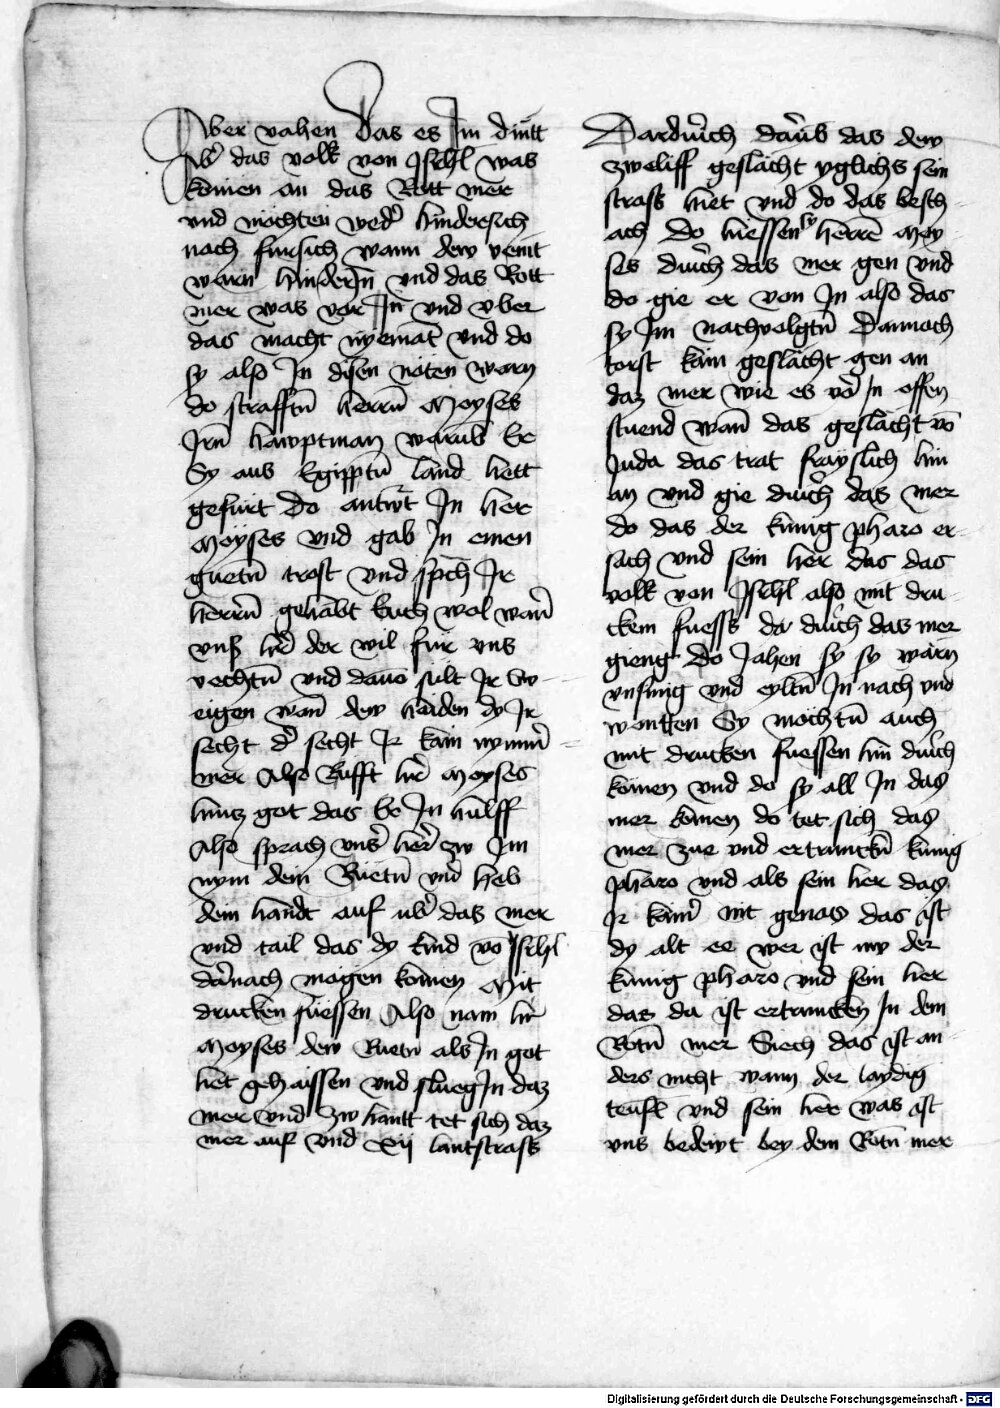 Aber vahen Das es Im dintt
Nũ das volk von Isrĥl was
komen an das Rott mer
vnd mochten wed̾ hinderesich
noch fursich wann dew veint
warn hinder In vnd das Rott
mer was vor In vnd vber
das macht nyemãt vnd do
sy also In disen nöten warn
do strafftñ herrñ Moyses
Irñ hawptman warũb Er
Sy aus Egipptñ land hett
gefurt Do antwrt In her
Moyses vnd gab In einen
guetñ trost vnd spch Ir
herrñ gehabt Euch wol wañ
vnß hr̃ der wil fur vns
vechtñ vnd davõ sult Ir Sw-
eigen wañ dew haiden dy Ir
secht d̾ secht Ir kain nymm̾
mer Also Rufft hr̃ Moyses
hintz got das Er In hulff
Also sprach vns̾ her̃ zw Im
nym dein Ruetñ vnd heb
dein handt auf ub̾ das mer
vnd tail das dy kind võ Isrĥl
darnach mogen komen Mit
drucken fuessen Also nam hr̃
Moyses dew Ruetñ als In got
het gehaissen vnd slueg In daz
mer vnd zw hantt tet sich daz
mer auf vnd xij lantstrass
Dardurch darub das dew
zweliff geslächt yglichs sein
strass hiet vnd do das besch-
ach do hiessen sy herrẽ Moy-
ses durch das mer gen vnd
do gie er von In also das
sy Im nachvolgtñ Dannoch
torst kain geslächt gen an
daz mer wie es võ In offen
stuend wañ das geslächt võ
Juda das trat frayslich hin
an vnd gie durch das mer
do das der kunig pharo er-
sach vnd sein her das das
volk von Isrĥl also mit dru-
cken fuess da durch das mer
gieng Do Jahen sy sy warn
vnsinig vnd eyltñ In nach vnd
wontten Sy möchtñ auch
mit drucken fuessen hin durch
komen vnd do sy all In das
mer komen do tet sich das
mer zue vnd ertranckñ kunig
pharo vnd als sein her das
Ir kain̾ nit genas das ist
dy alt ee wer ist nw der
kunig pharo vnd sein her
das da ist ertruncken In dem
Rotñ mer Siech das ist an-
ders nicht wann der laydig
teufl vnd sein her was ist
vns bedewt bey dem Rotñ mer
Digitalisierung gefördert durch die Deutsche Forschungsgemeinschaft - DFG